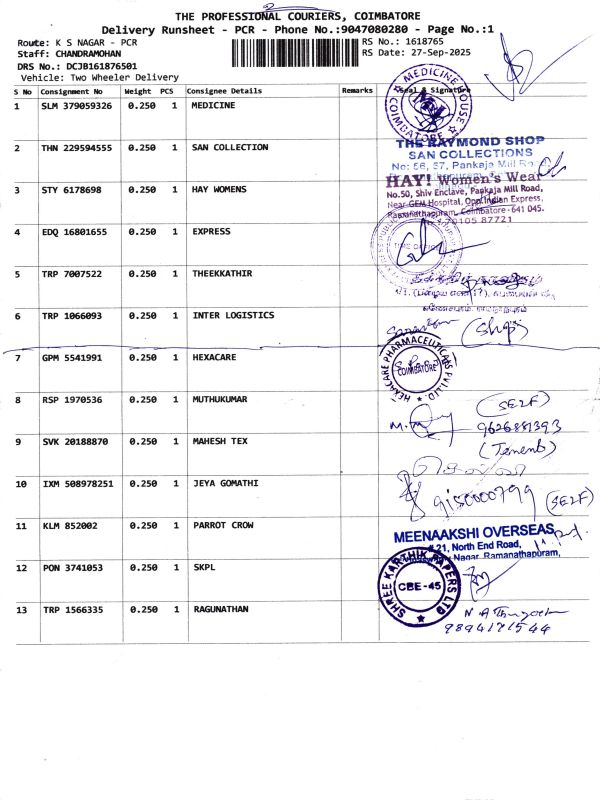 THE PROFESSIONAL COURIERS, COIMBATORE
Delivery Runsheet - PCR - Phone No.:9047080280 - Page No.:1
Route: K S NAGAR - PCR
RS No.: 1618765
Staff: CHANDRAMOHAN
RS Date: 27-Sep-2025
DRS No.: DCJB161876501
Vehicle: Two Wheeler Delivery
S No Consignment No Weight PCS Consignee Details Remarks Seal & Signature
1 SLM 379059326 0.250 1 MEDICINE
MEDICINE HOUSE COIMBATORE
2 THN 229594555 0.250 1 SAN COLLECTION
THE RAYMOND SHOP
SAN COLLECTIONS
No: 56, 57, Pankaja Mill Ro
3 STY 6178698 0.250 1 HAY WOMENS
HAY! Women's Wear
No.50, Shiv Enclave, Pankaja Mill Road,
Near GEM Hospital, Opp.Indian Express,
Ramanathapuram, Coimbatore-641 045.
70105 87721
4 EDQ 16801655 0.250 1 EXPRESS
TIME OFFICE
5 TRP 7007522 0.250 1 THEEKKATHIR
6 TRP 1066093 0.250 1 INTER LOGISTICS
7 GPM 5541991 0.250 1 HEXACARE
HEXACARE PHARMACEUTICALS PVT LTD.
COIMBATORE
8 RSP 1970536 0.250 1 MUTHUKUMAR
(SELF)
9626881393
9 SVK 20188870 0.250 1 MAHESH TEX
10 IXM 508978251 0.250 1 JEYA GOMATHI
9150000799 (SELF)
11 KLM 852002 0.250 1 PARROT CROW
MEENAAKSHI OVERSEAS
# 21, North End Road,
Nagar, Ramanathapuram,
12 PON 3741053 0.250 1 SKPL
SHREE KARTHIK PAPERS LTD
CBE-45
13 TRP 1566335 0.250 1 RAGUNATHAN
9894171544